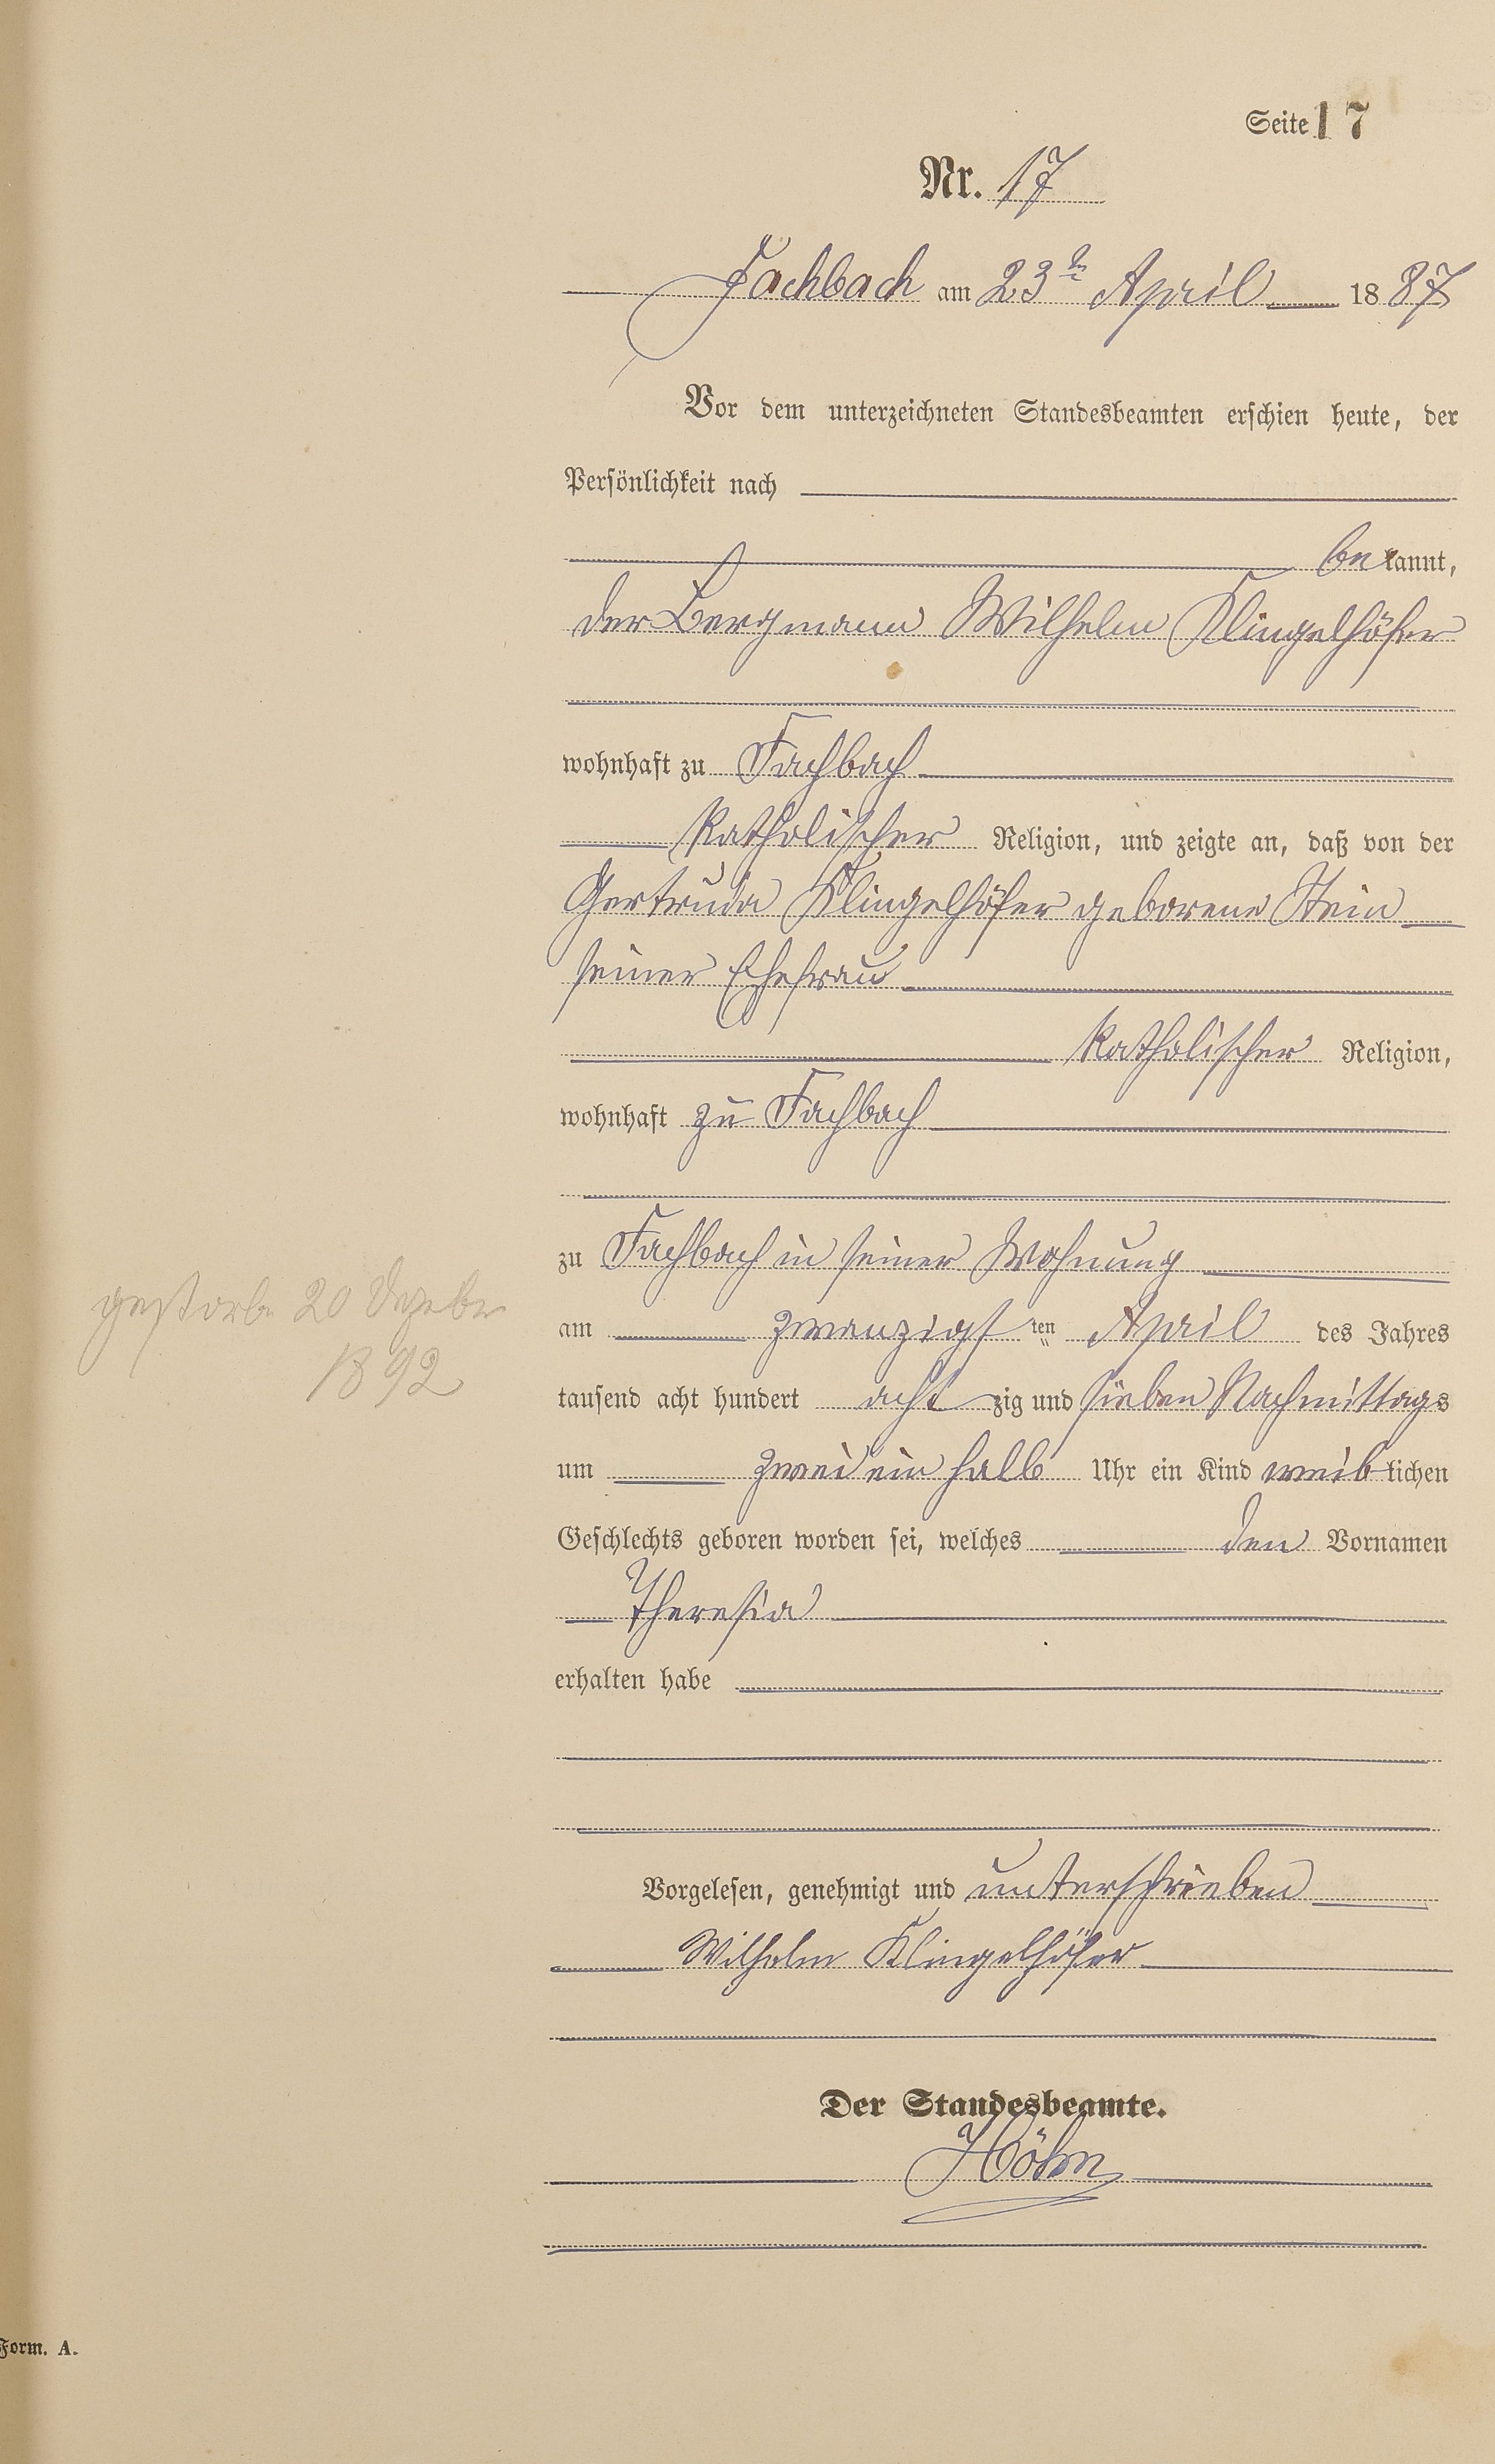 Seite 17
Nr. 17
Fachbach am 23ten April 1887
Vor dem unterzeichneten Standesbeamten erschien heute, der
Persönlichkeit nach
bekannt,
der Bergmann Wilhelm Klingelhöfer
wohnhaft zu Fachbach
katholischer Religion, und zeigte an, daß von der
Gertruda Klingelhöfer geborene Stein
seiner Ehefrau
katholischer Religion,
wohnhaft zu Fachbach
zu Fachbach in seiner Wohnung
am zwanzigsten April des Jahres
tausend acht hundert achtzig und sieben Nachmittags
um zwei ein halb Uhr ein Kind weiblichen
Geschlechts geboren worden sei, welches den Vornamen
Theresia
erhalten habe
Vorgelesen, genehmigt und unterschrieben
Wilhelm Klingelhöfer
Der Standesbeamte.
Höhn
gestorbe 20 Dezebr
1892
Form. A.